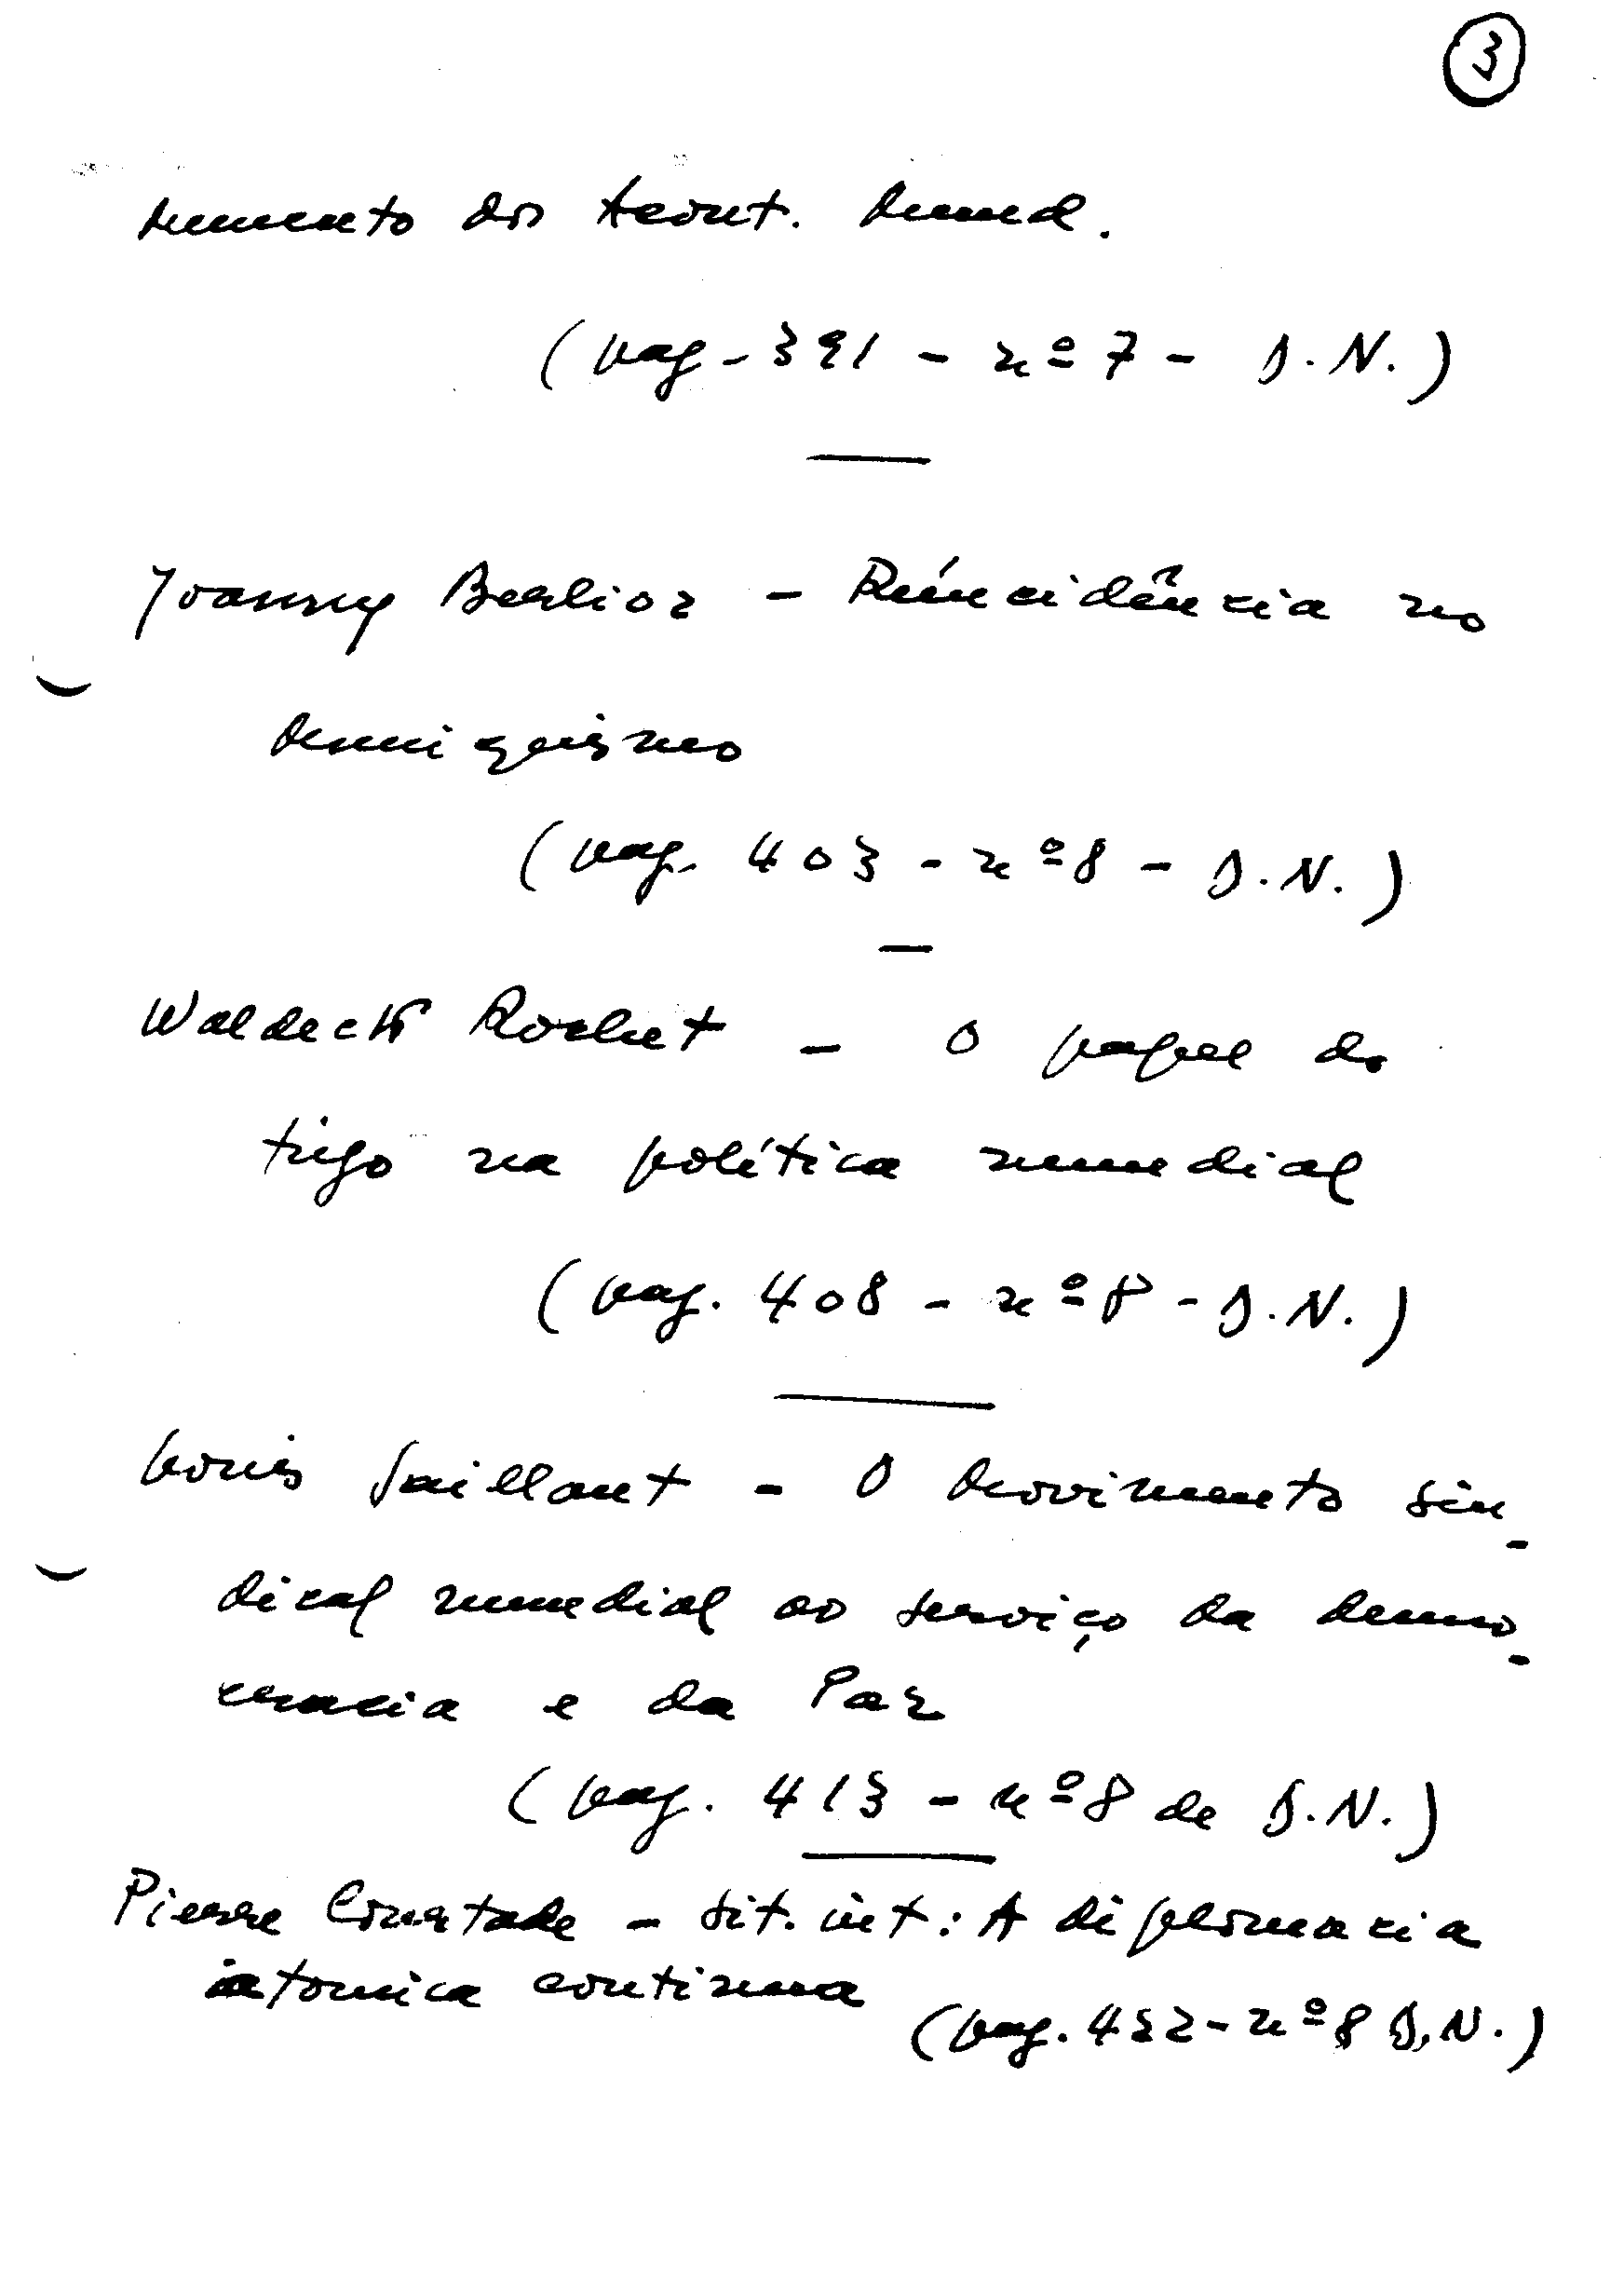 3
dos Acont. Mund.
(pag. 391 - nº 7 - D.N.)
Joanny Berlioz - Reincidência no
muniquismo
(pag. 403 - nº 8 - D.N.)
Waldeck Rochet - O papel do
trigo na política mundial
(pag. 408 - nº 8 - D.N.)
Louis Saillant - O movimento sin-
dical mundial ao serviço da demo-
cracia e da Paz
(pag. 413 - nº 8 de D.N.)
Pierre Courtade - Sit. int: A diplomacia
atomica continua (pag. 432 - nº 8 D.N.)